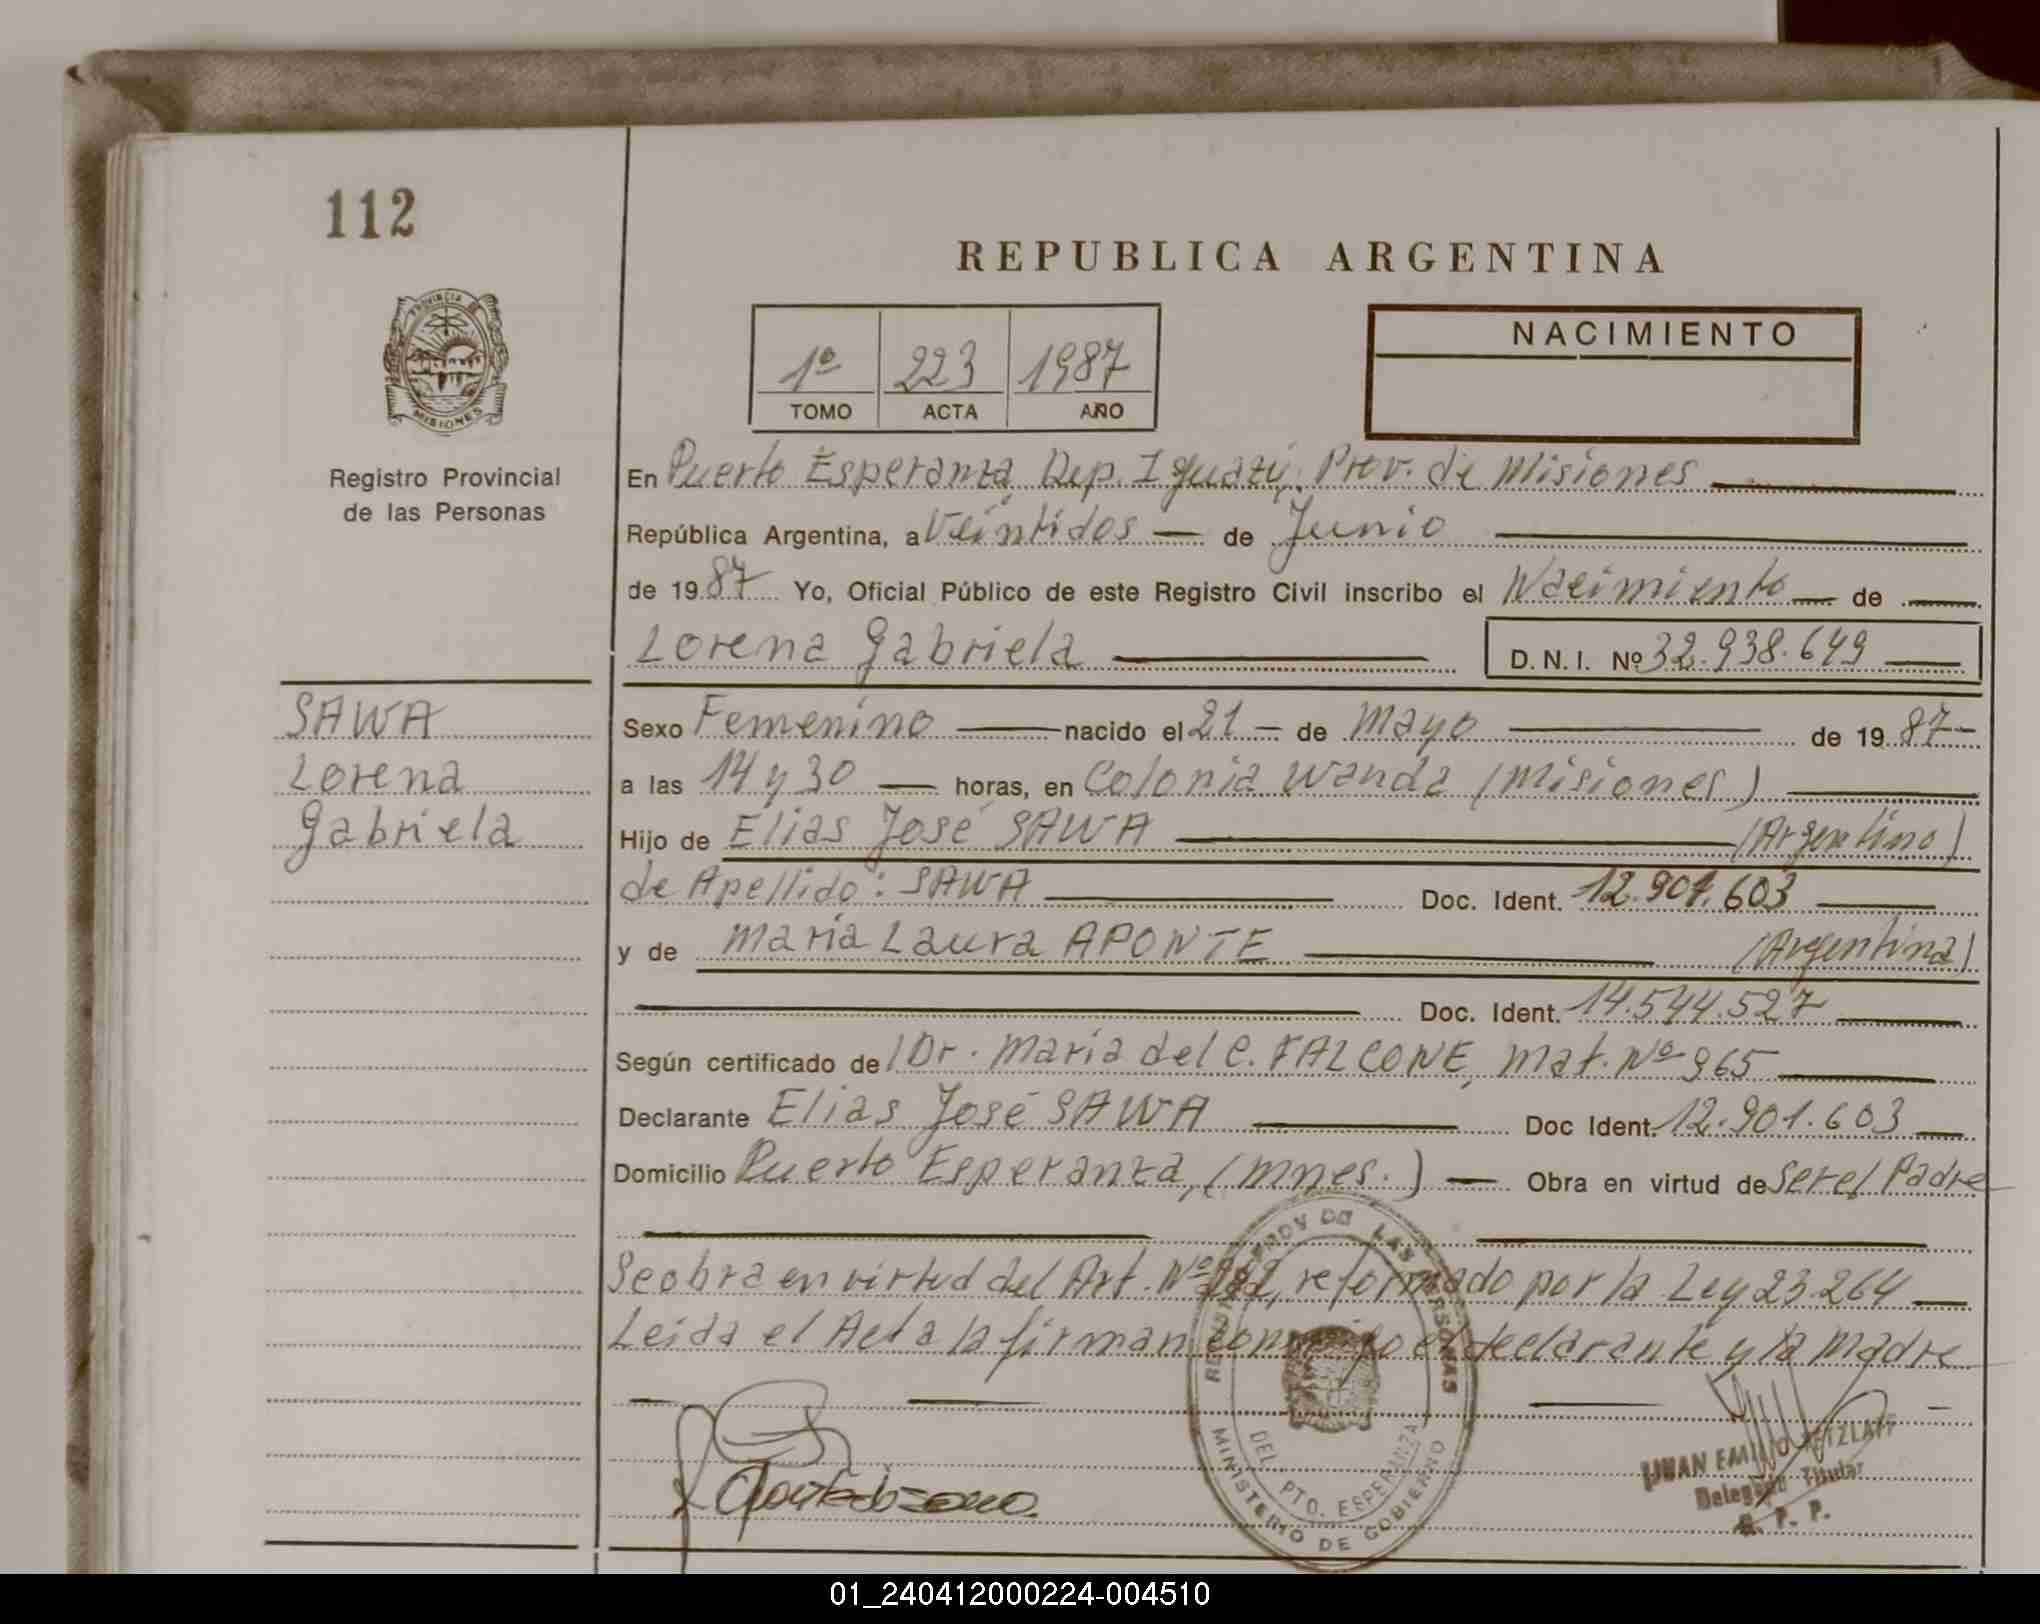 112
PROVINCIA DE
MISIONES
Registro Provincial
de las Personas
SAWA
Lorena
Gabriela
REPUBLICA ARGENTINA
1º 223 1987
TOMO ACTA AÑO
NACIMIENTO
En Puerto Esperanza, Dep. Iguazú, Prov. de Misiones
República Argentina, a Veintidos — de Junio
de 1987 Yo, Oficial Público de este Registro Civil inscribo el Nacimiento — de —
Lorena Gabriela — D.N.I. Nº 32.938.649 —
Sexo Femenino — nacido el 21 — de Mayo — de 1987 —
a las 14 y 30 — horas, en Colonia Wanda (Misiones) —
Hijo de Elias José SAWA — (Argentino)
de Apellido: SAWA — Doc. Ident. 12.901.603 —
y de Maria Laura APONTE — (Argentina)
— Doc. Ident. 14.544.527 —
Según certificado de / Dr. Maria del C. FALCONE, Mat. Nº 965 —
Declarante Elias José SAWA — Doc Ident. 12.901.603 —
Domicilio Puerto Esperanza, (Mnes.) — Obra en virtud de Ser el Padre
Se obra en virtud del Art. Nº reformado por la Ley 23.264 —
Leida el Acta la firman conmigo el declarante y la Madre
PROV DE LAS PERSONAS
DEL PTO. ESPERANZA
MINISTERIO DE GOBIERNO
JUAN EMILIO
Delegado Titular
R. P. P.
01_240412000224-004510